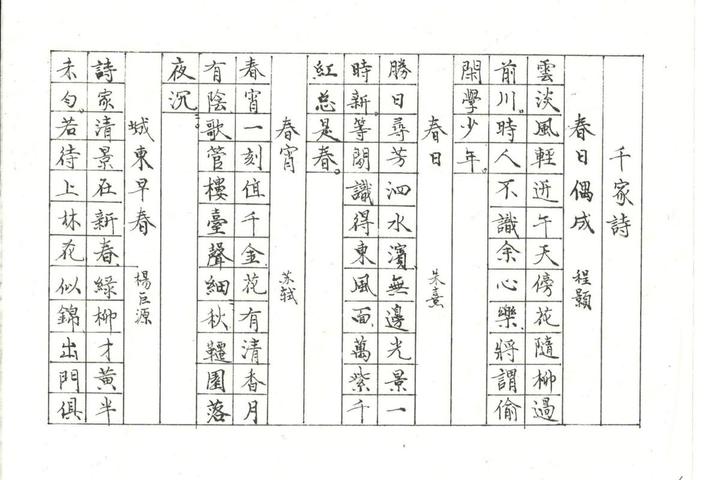 千家詩
春日偶成 程顥
雲淡風輕近午天傍花隨柳過
前川。時人不識余心樂將謂偷
閑學少年。
春日 朱熹
勝日尋芳泗水濱無邊光景一
時新等閒識得東風面萬紫千
紅總是春。
春宵 苏軾
春宵一刻值千金花有清香月
有陰歌管樓臺聲細秋韆園落
夜沉。
城東早春 楊巨源
詩家清景在新春綠柳才黃半
未勻。若待上林花似錦出門俱